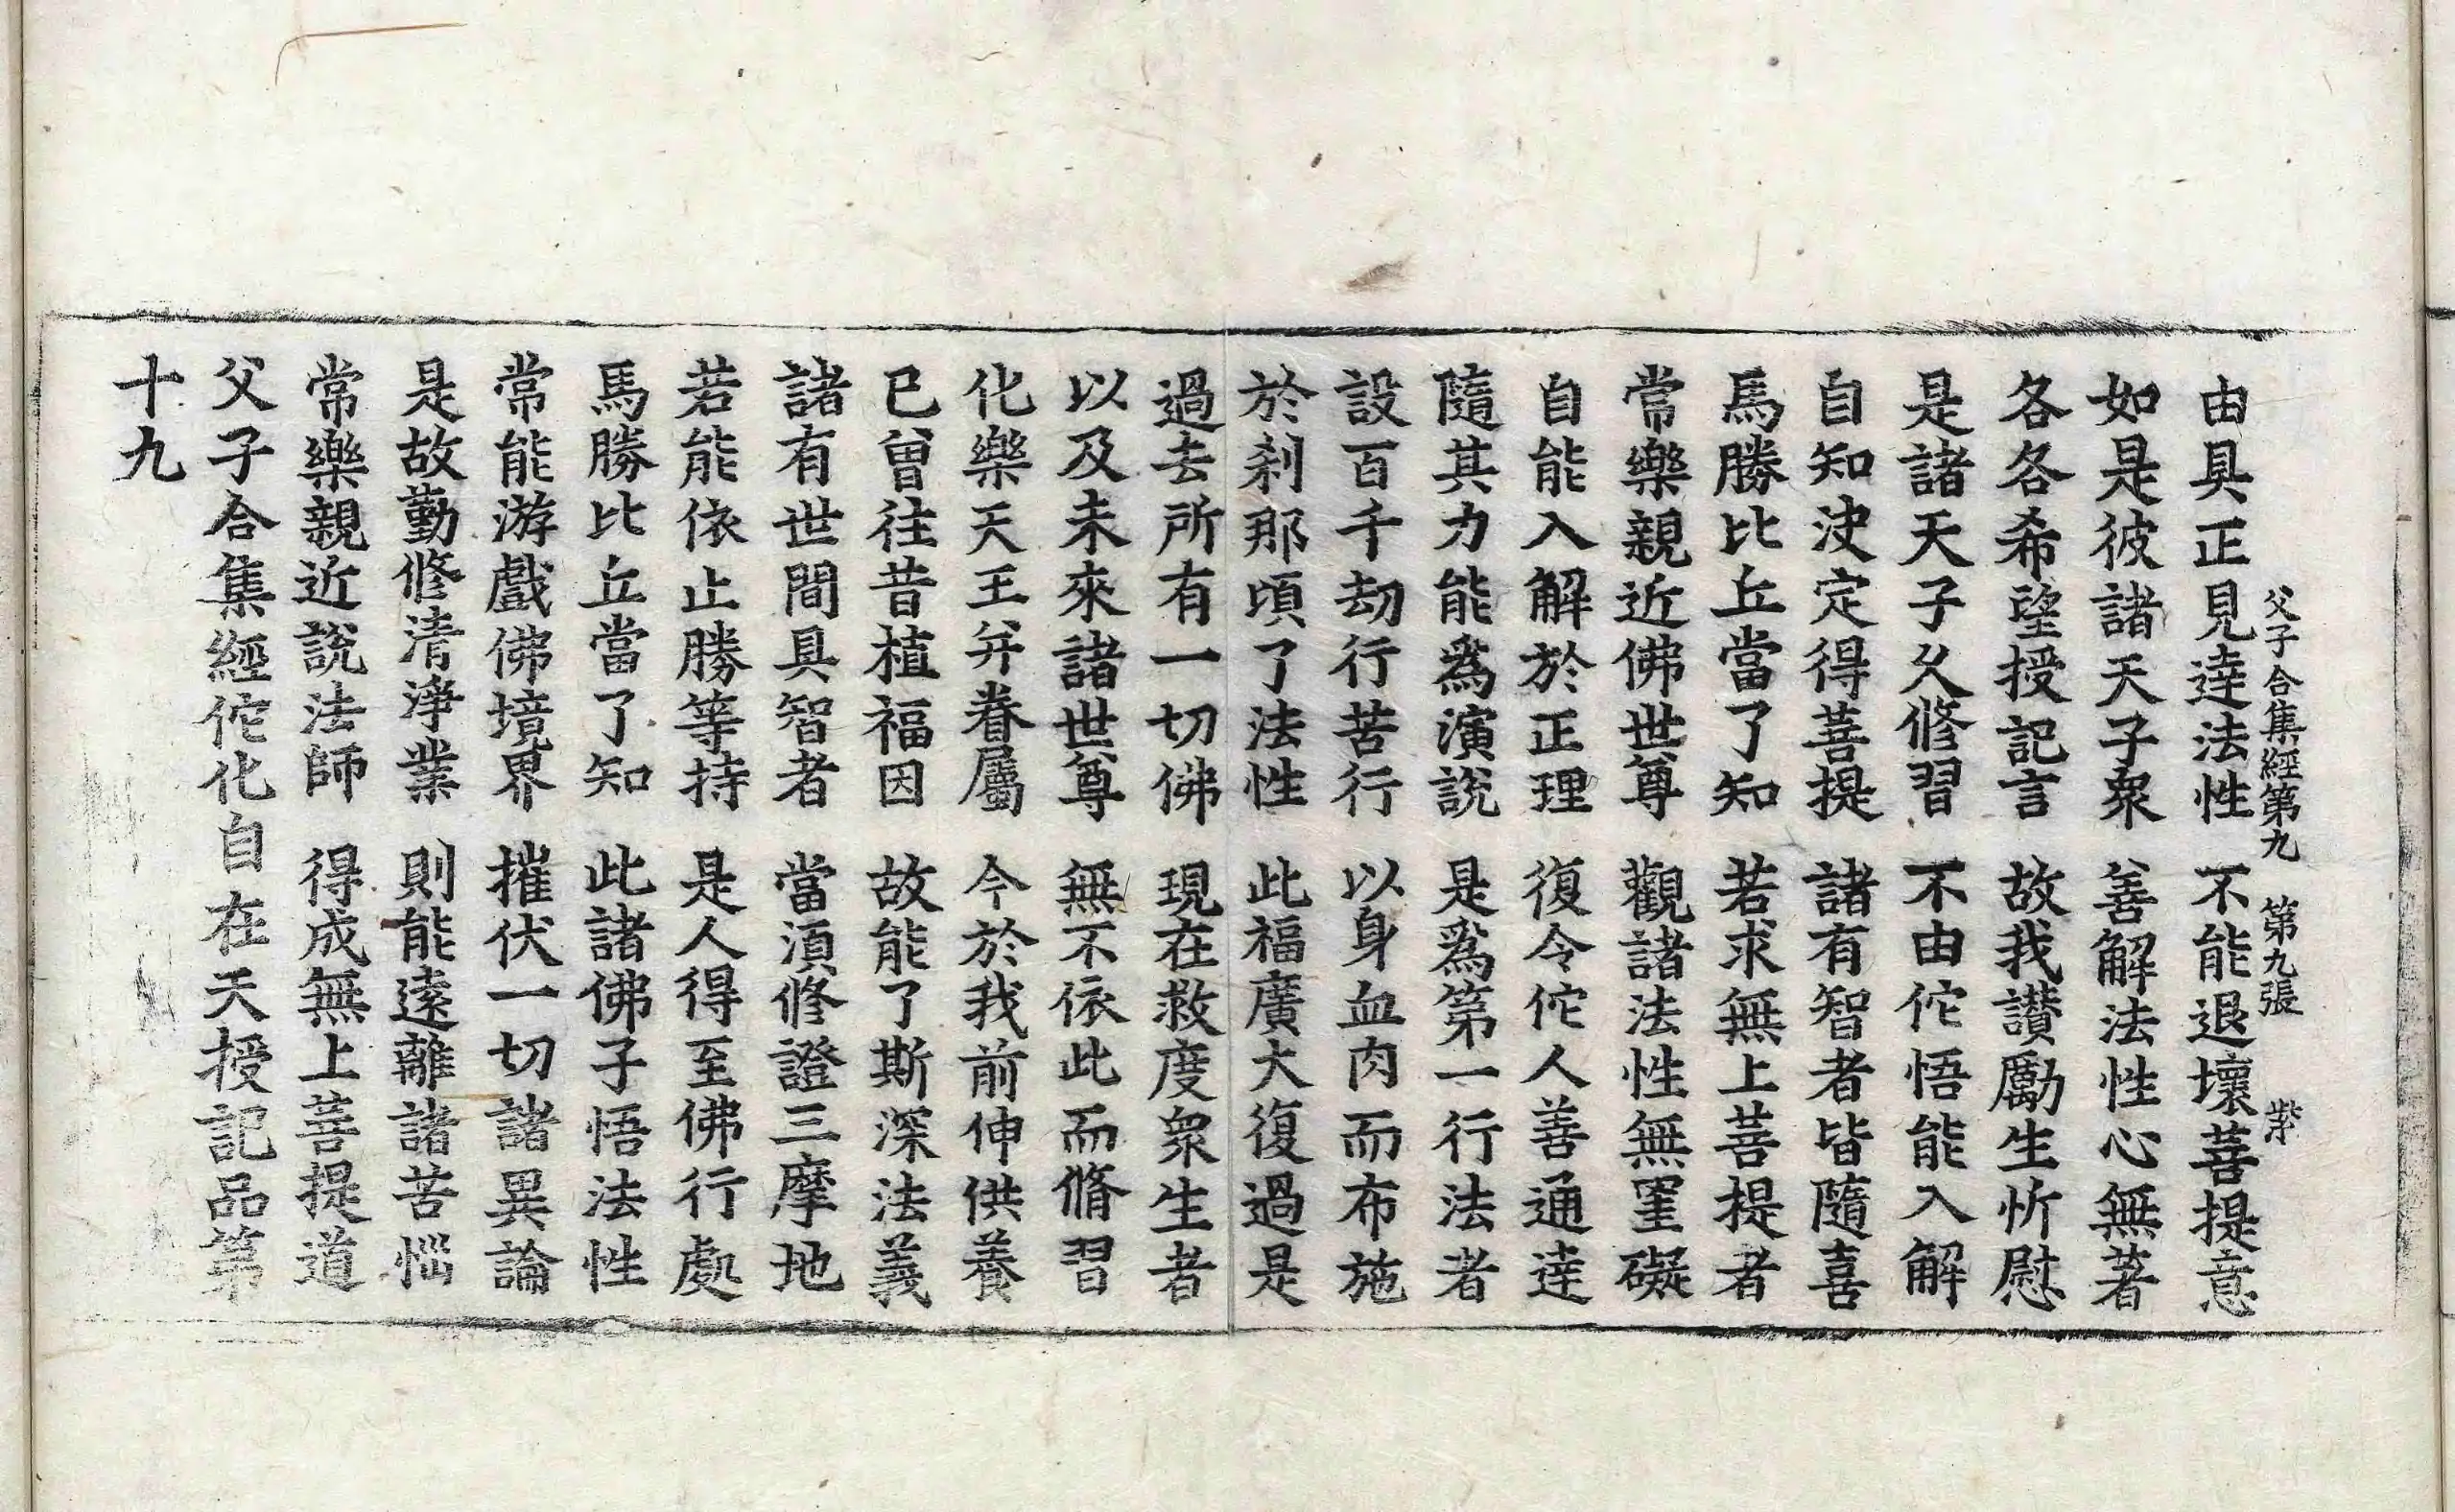 父子合集經第九 第九張 紫
由具正見達法性 不能退壞菩提意
如是彼諸天子衆 善解法性心無著
各各希望授記言 故我讃勵生忻慰
是諸天子久修習 不由佗悟能入解
自知決定得菩提 諸有智者皆隨喜
馬勝比丘當了知 若求無上菩提者
常樂親近佛世尊 觀諸法性無罣礙
自能入解於正理 復令佗人善通達
隨其力能爲演說 是爲第一行法者
設百千劫行苦行 以身血肉而布施
於刹那頃了法性 此福廣大復過是
過去所有一切佛 現在救度衆生者
以及未來諸世尊 無不依此而脩習
化樂天王并眷屬 今於我前伸供養
已曾往昔植福因 故能了斯深法義
諸有世間具智者 當湏修證三摩地
若能依止勝等持 是人得至佛行處
馬勝比丘當了知 此諸佛子悟法性
常能游戲佛境界 摧伏一切諸異論
是故勤修清淨業 則能遠離諸苦惱
常樂親近說法師 得成無上菩提道
父子合集經佗化自在天授記品第
十九